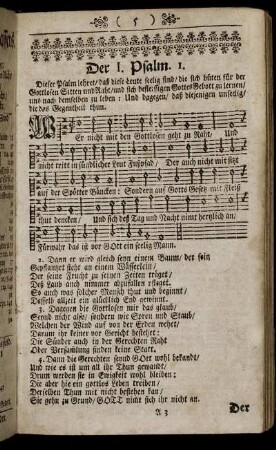 ( 5 )
Der I. Psalm. 1.
Dieser Psalm lehret, das diese leute seelig sind, die sich hüten für der
Gottlosen Sitten und Raht, und sich befleissigen Gottes Gebott zu lernen,
uns nach demselben zu leben: Und dagegen, daß diejenigen unseelig,
die das Gegentheil thun.
WEr nicht mit den Gottlosen geht zu Raht, Und
nicht tritt in sündlicher leut Fußpfad, Der auch nicht mit sitzt
auf der Spötter Bäncken: Sondern auf Gotts Gesetz mit Fleiß
thut dencken, Und sich deß Tag und Nacht nimt hertzlich an,
Fürwahr das ist vor GOtt ein seelig Mann.
2. Dann er wird gleich seyn einem Baum, der sein
Gepflantzet steht an einem Wässerelein,
Der seine Frucht zu seinen Zeiten träget,
Deß Laub auch nimmer abzufallen pfleget,
Es auch was solcher Mensch thut und beginnt,
Dasselb allzeit ein glücklich End gewinnt.
3. Dagegen die Gottlosen mir das glaub,
Seynd nicht also, sondern wie Spreu und Staub,
Welchen der Wind auf von der Erden wehet,
Darum ihr keiner vor Gericht bestehet:
Die Sünder auch in der Gerechten Raht
Oder Versamlung finden keine Statt.
4. Dann die Gerechten seynd GOtt wohl bekandt,
Und wie es ist um all ihr Thun gewandt,
Drum werden sie in Ewigkeit wohl bleiben:
Die aber ihr ein gottlos Leben treiben,
Derselben Thun mit nicht bestehen kan,
Sie gehn zu Grund, GOTT nimt sich ihr nicht an.
A 3
Der